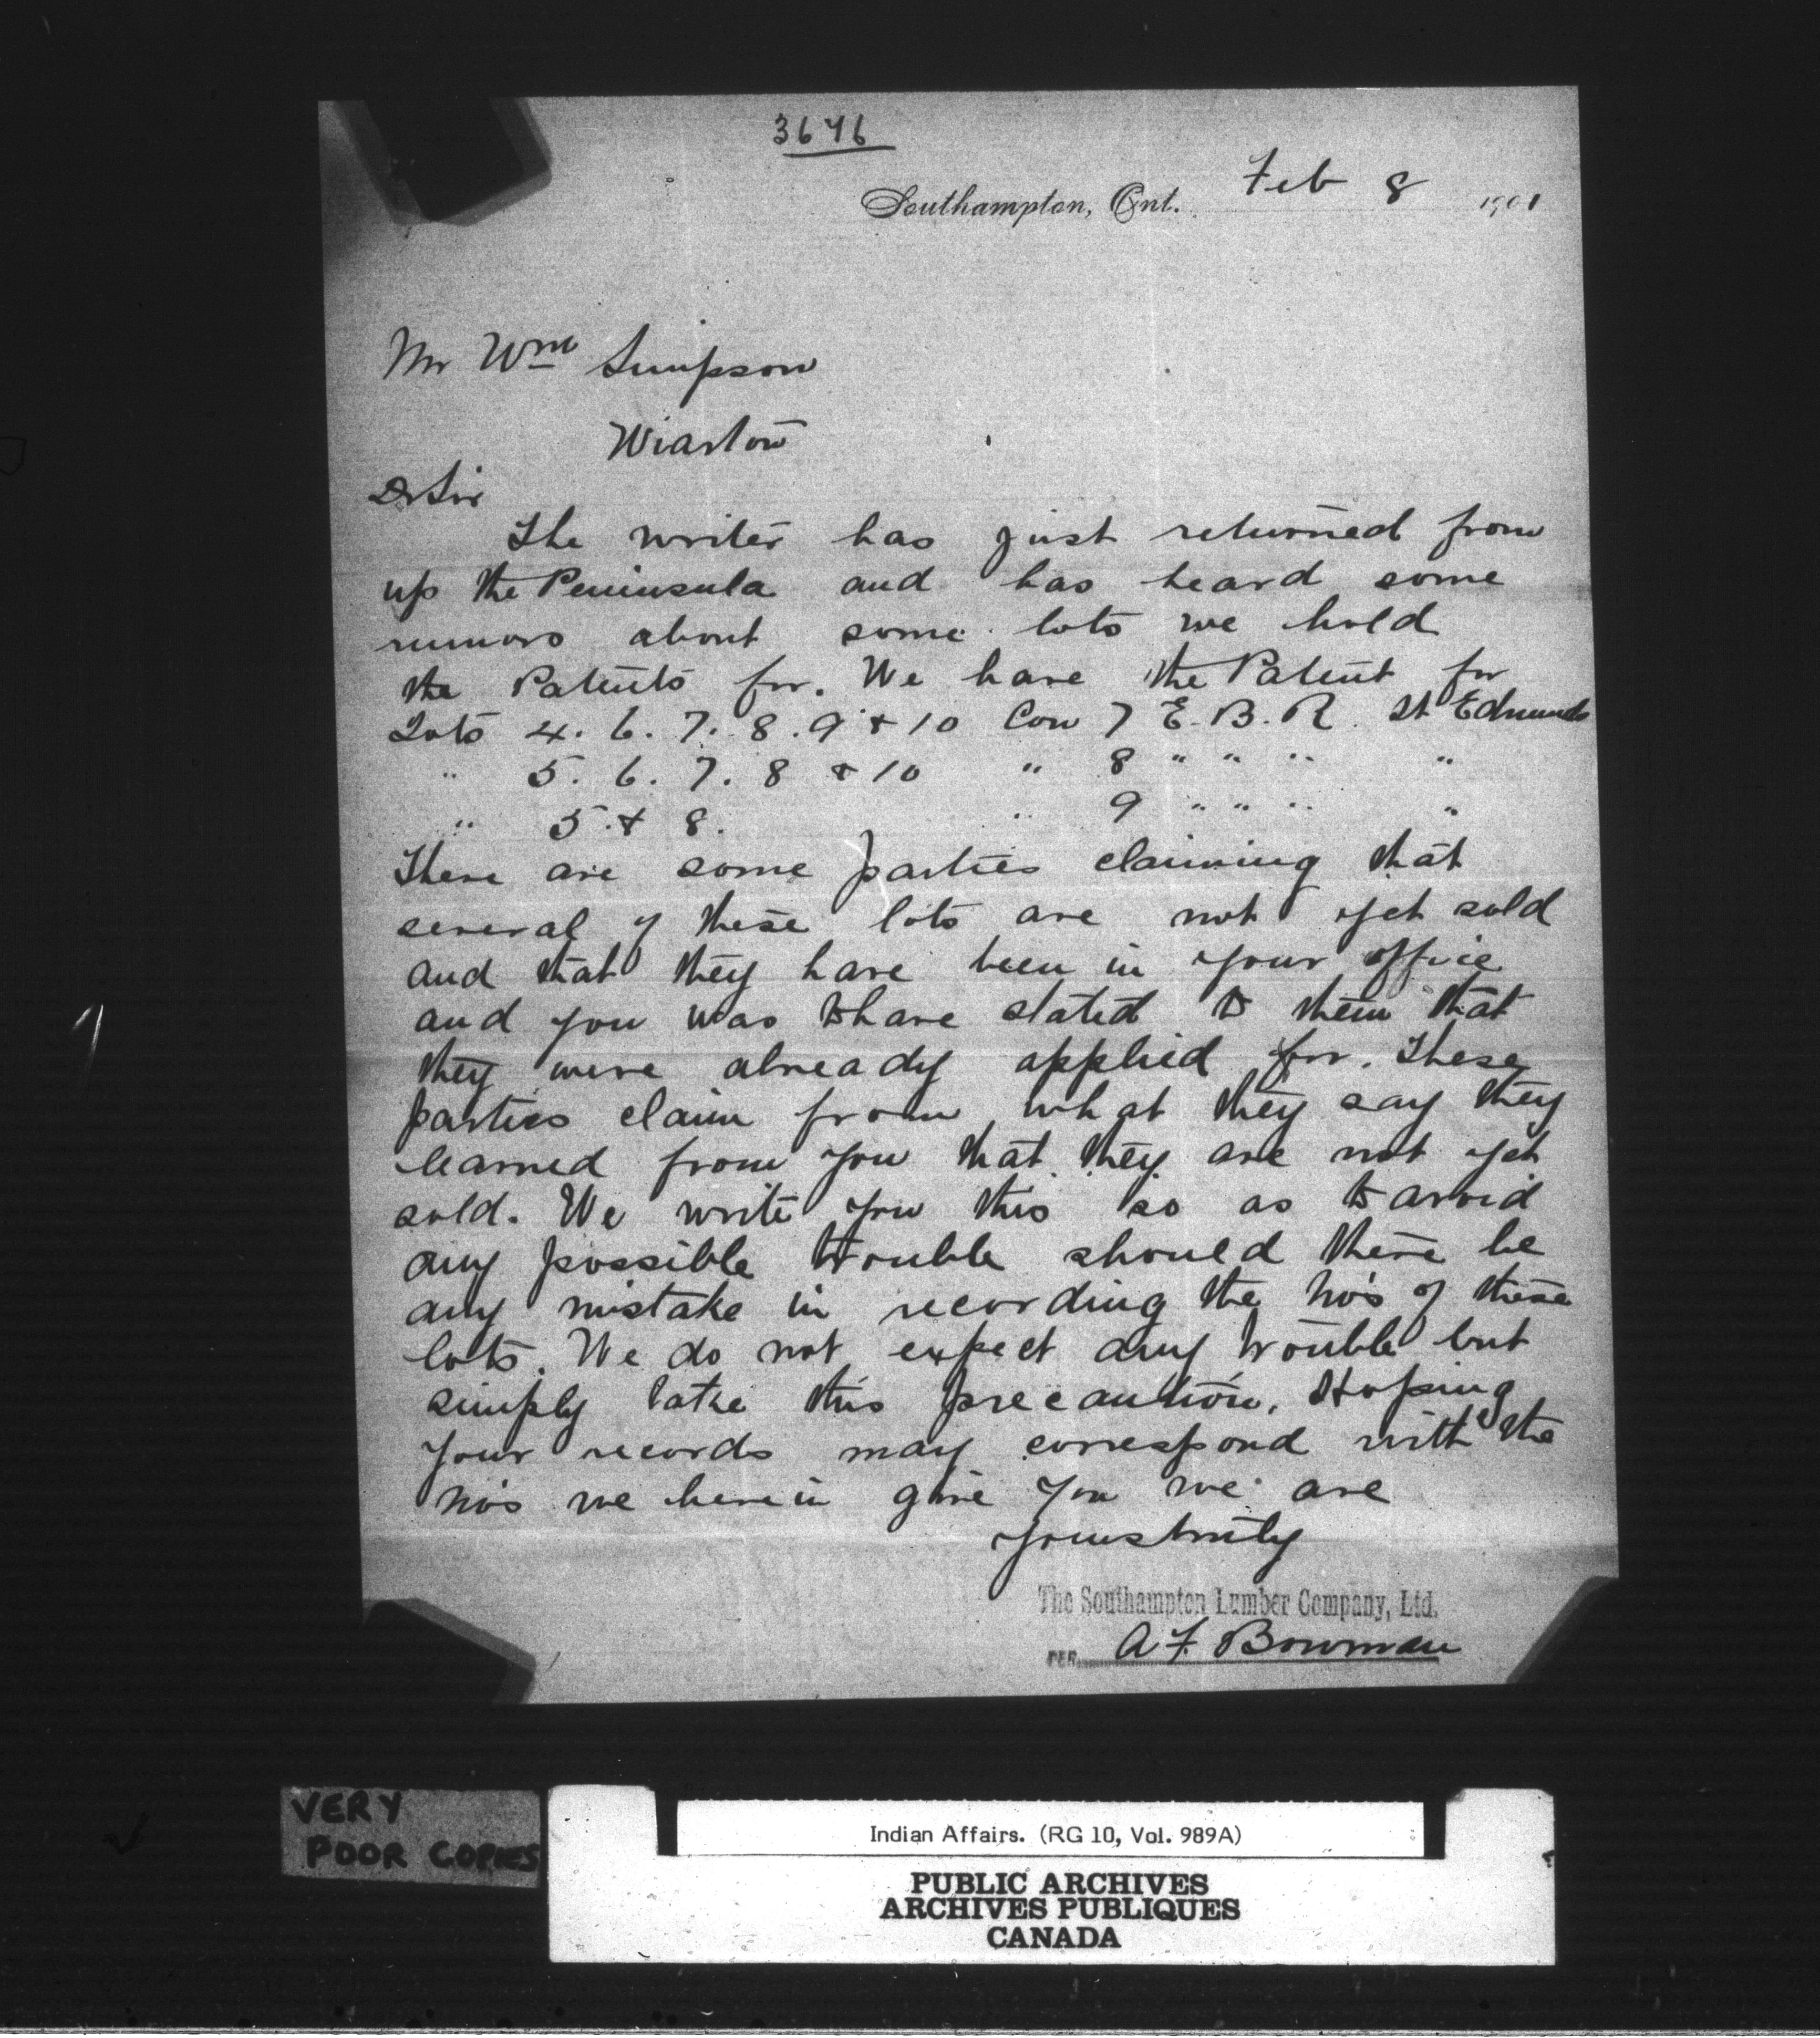 3646
Southampton, Ont. Feb 8 1901
Mr Wm Simpson
Wiarton
Dr Sir
The writer has just returned from
up the Peninsula and has heard some
rumors about some lots we hold
the Patents for. We have the Patent for
Lots 4. 6. 7. 8. 9 & 10 Con 7 E. B. R. St Edmunds
" 5. 6. 7. 8 & 10 " 8 " " " "
" 5 & 8. " 9 " " " "
There are some parties claiming that
several of these lots are not yet sold
and that they have been in your office
and you was to have stated to them that
they were already applied for. These
parties claim from what they say they
learned from you that they are not yet
sold. We write you this so as to avoid
any possible trouble should there be
any mistake in recording the No's of these
lots. We do not expect any trouble but
simply take this precaution. Hoping
your records may correspond with the
No's we herein give you we are
Yours truly
The Southampton Lumber Company, Ltd.
PER. A F. Bowman
VERY
POOR COPIES
Indian Affairs. (RG 10, Vol. 989A)
PUBLIC ARCHIVES
ARCHIVES PUBLIQUES
CANADA